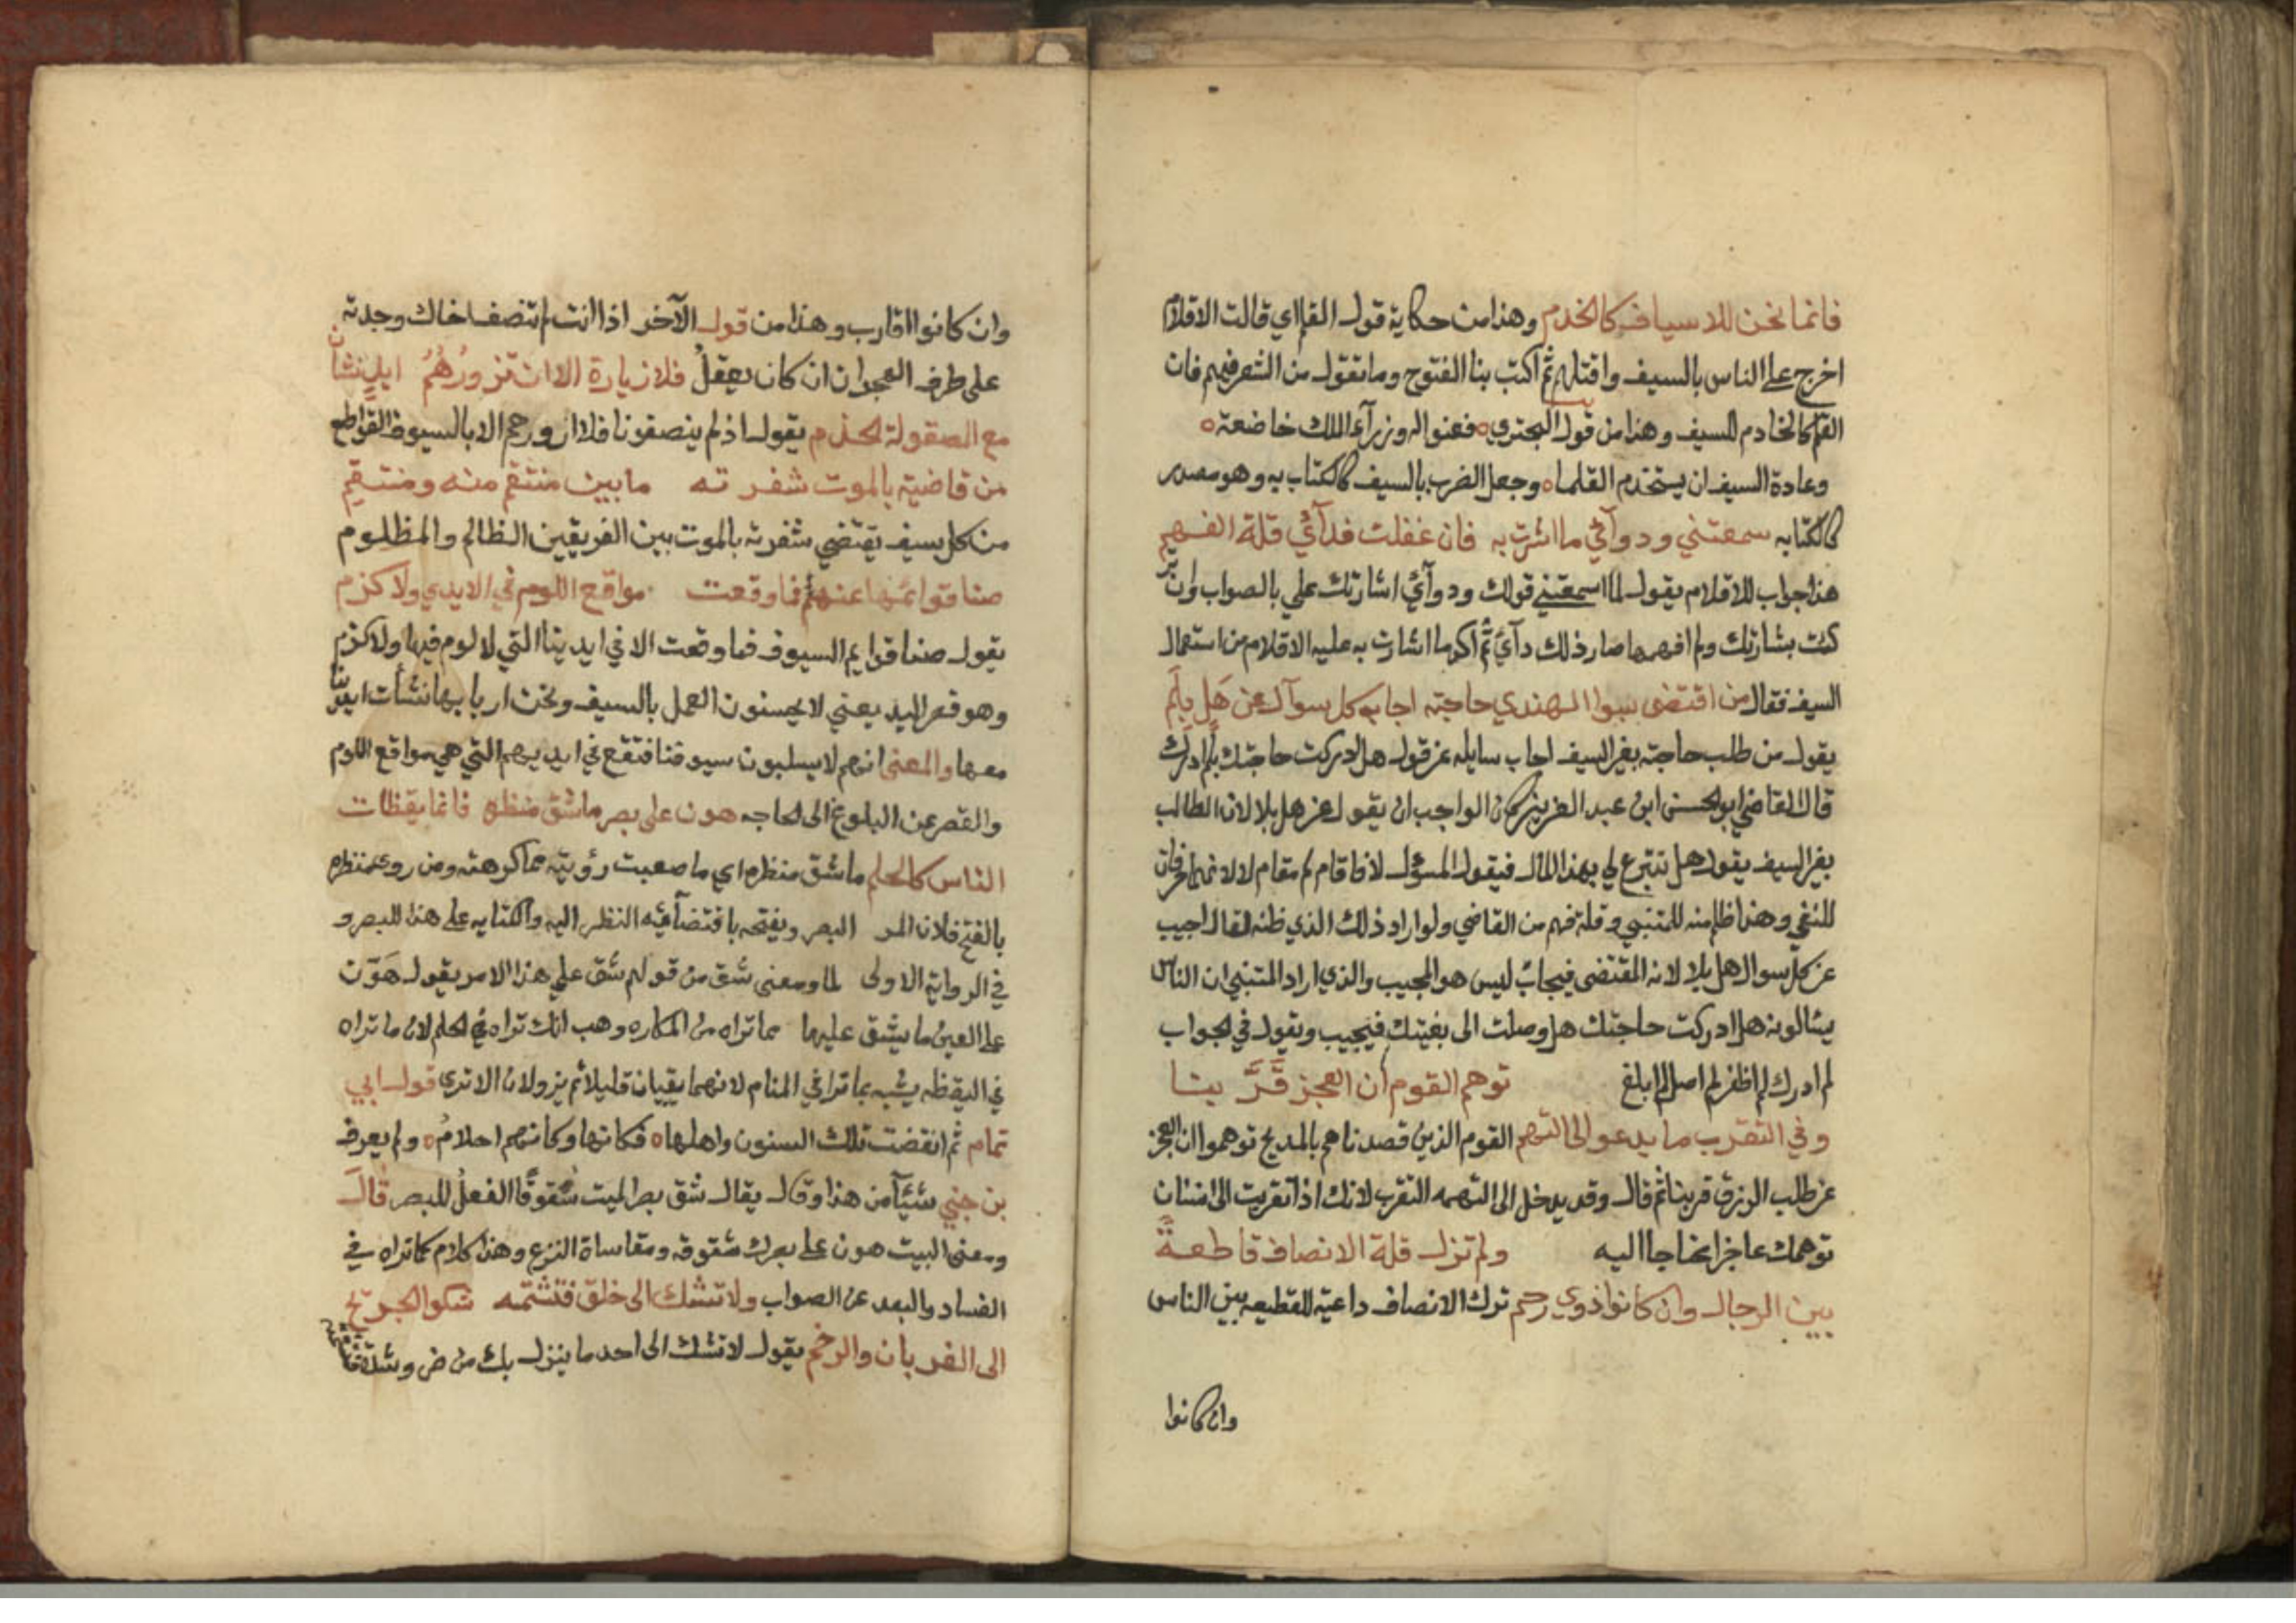 فانما نحن للاسياف كالخدم وهذا من حكاية قول القلم اي قالت الاقلام
اخرج على الناس بالسيف واقتلهم ثم اكتب بنا الفتوح وما تقول من الشعر فيهم فان
القلم كالخادم للسيف وهذا من قول البحتري ه فعنوا له وزرآء الملك خاضعة ه
وعادة السيف ان يستخدم القلما ه وجعل الضرب بالسيف كالكتاب به وهو مصدر
كالكتابه سمعتني ودوآئي ما اشرت به فان غفلت فدآئي قلة الفهم
هذا جواب للاقلام يقول لها اسمعتني قولك ودوآئي اشارتك علي بالصواب وان تر
كت بشارتك ولم افهمها صار ذلك دآئي ثم اكد ما اشارت به عليه الاقلام من استعمال
السيف فقال من اقتضى بسوا الهندي حاجته اجاب كل سوآل عن هَل بِلَم
يقول من طلب حاجته بغير السيف اجاب سايله عن قول هل ادركت حاجتك بلم ادرك
قال القاضي ابو الحسن ابن عبد العزيز كان الواجب ان يقول عن هل بلا لان الطالب
بغير السيف يقول هل تتبرع لي بهذا المال فيقول المسؤل لا فاقام لم مقام لا لانهما حرفان
للنفي وهذا ظلم منه للمتنبي وقلة فهم من القاضي ولو اراد ذلك الذي ظنه لقال اجيب
عن كل سوال هل بلا لانه المقتضى فيجاب ليس هو المجيب والذي اراد المتنبي ان الناس
يسٔالونه هل ادركت حاجتك هل وصلت الى بغيتك فيجيب ويقول في الجواب
لم ادرك لم اظفر لم اصل لم ابلغ توهم القوم ان العجز قَرَّ بنا
وفي التقرب ما يدعو الى التهم القوم الذين قصدناهم بالمديح توهموا ان العجز
عن طلب الرزق قربنا ثم قال وقد يدخل الى التهمه التقرب لانك اذا تقربت الى انسان
توهمك عاجزا محتاجا اليه ولم تزل قلة الانصاف قاطعةً
بين الرجال وان كانوا ذوي رحم ترك الانصاف داعية للقطيعه بين الناس
وان كانوا
وان كانوا اقارب وهذا من قول الآخر اذا انت لم تنصف اخاك وجدته
على طرف الهجران ان كان يعقلُ فلا زيارة الا ان تزورُهُمُ ايدٍ نشأن
مع المصقولة الخذم يقول اذ لم ينصفونا فلا ازورهم الا بالسيوف القواطع
من قاضية بالموت شفرته ما بين منتقم منه ومنتقم
من كل سيف يقتضي شفرته بالموت بين الفريقين الظالم والمظلوم
صنا قوائمها عنهم فما وقعت مواقع اللوم في الايدي ولا كزم
يقول صنا قوايم السيوف فما وقعت الا في ايدينا التي لا لوم فيها ولا كزم
وهو قصر اليد يعني لا يحسنون العمل بالسيف ونحن اربابها نشأت ايدينا
معها والمعنى انهم لا يسلبون سيوفنا فتقع في ايديهم التي هي مواقع اللوم
والقصر عن البلوغ الى الحاجه هون على بصر ما شق منظره فانما يقظات
الناس كالحلم ما شق منظره اي ما صعبت رؤيته مما كرهته ومن روى منظره
بالفتح فلان المر البصر ويفتحه باقتضآئه النظر اليه والكتايه على هذا للبصر و
في الرواية الاولى لما ومعنى شق من قولهم شق علي هذا الامر يقول هَوّن
على العين ما يشق عليها مما تراه من المكاره وهب انك تراه في الحلم لان ما تراه
في اليقظه يشبه بما ترا في المنام لانهما يبقيان قليلا ثم يزولان الا ترى قول ابي
تمام ثم انقضت تلك السنون واهلها ه فكانها وكانهم احلامُ ه ولم يعرف
بن جني شيئآ من هذا وقال يقال شق بصر الميت شُقوقًا الفعلُ للبصر قال
ومعنى البيت هون على بصرك شقوقه ومقاساة النزع وهذا كلام كما تراه في
الفساد والبعد عن الصواب ولا تشك الى خلق فتشمته شكو الجريح
الى الغربان والرخم يقول لا تشك الى احد ما ينزل بك من ضر وشدة